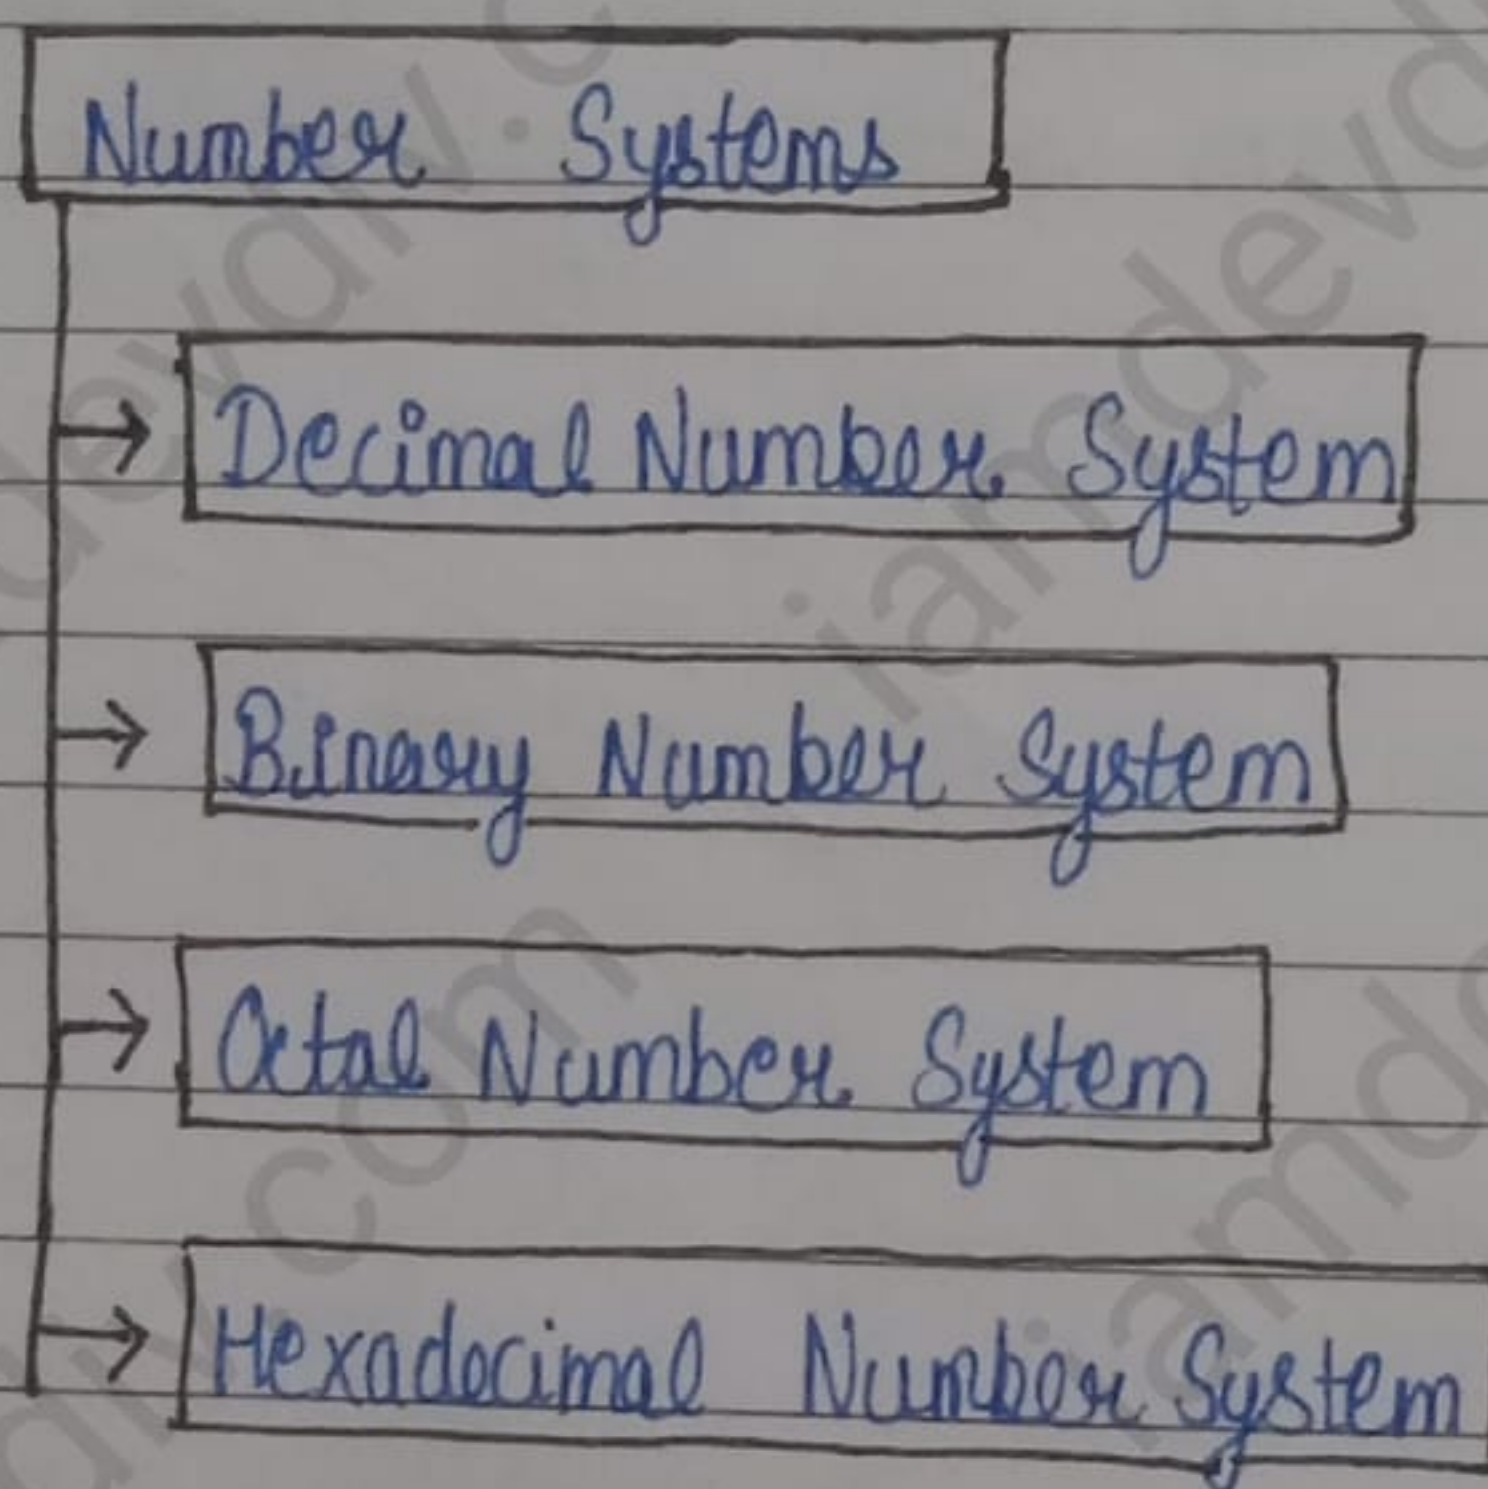 Number Systems
Decimal Number System
Binary Number System
Octal Number System
Hexadecimal Number System
iamdevdiv.com